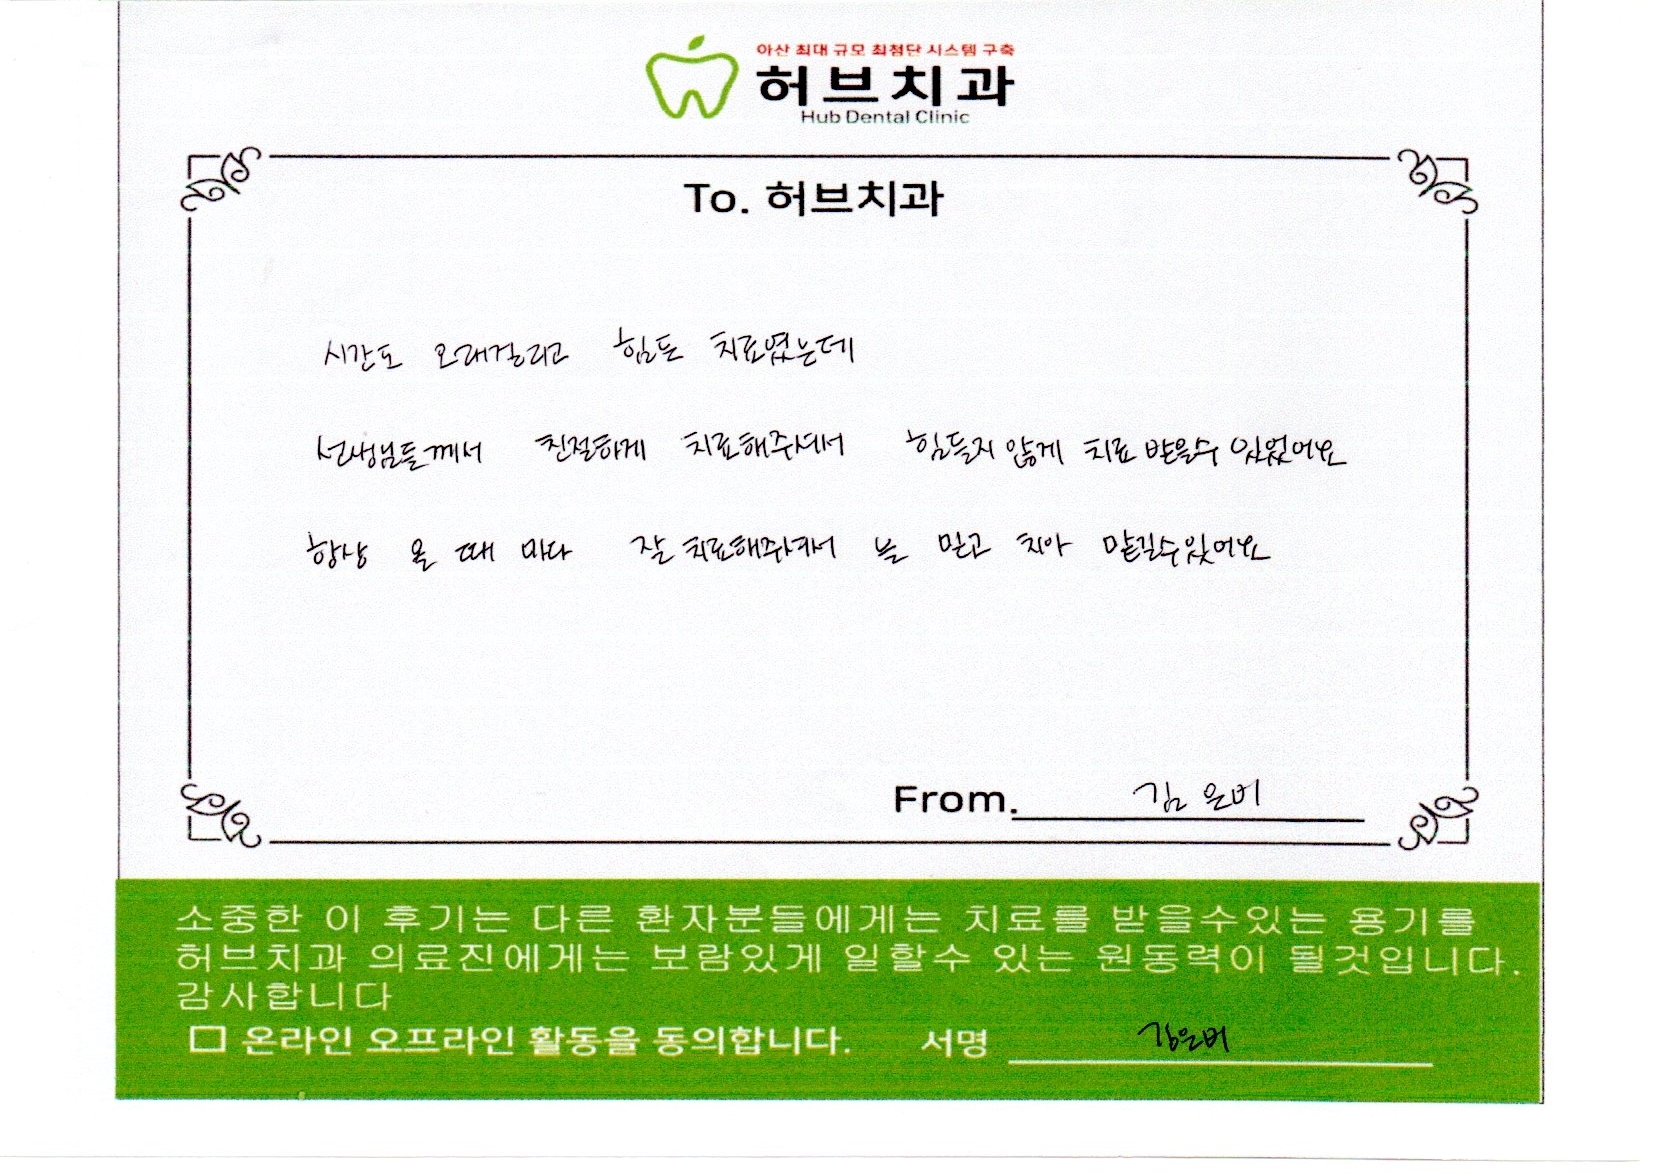 아산 최대 규모 최첨단 시스템 구축
허브치과
Hub Dental Clinic
To. 허브치과
시간도 오래걸리고 힘든 치료였는데
선생님들께서 친절하게 치료해주셔서 힘들지 않게 치료 받을수 있었어요
항상 올 때 마다 잘 치료해주셔서 늘 믿고 치아 맡길수있어요
From. 김은비
소중한 이 후기는 다른 환자분들에게는 치료를 받을수있는 용기를
허브치과 의료진에게는 보람있게 일할수 있는 원동력이 될것입니다.
감사합니다
□ 온라인 오프라인 활동을 동의합니다. 서명 김은비